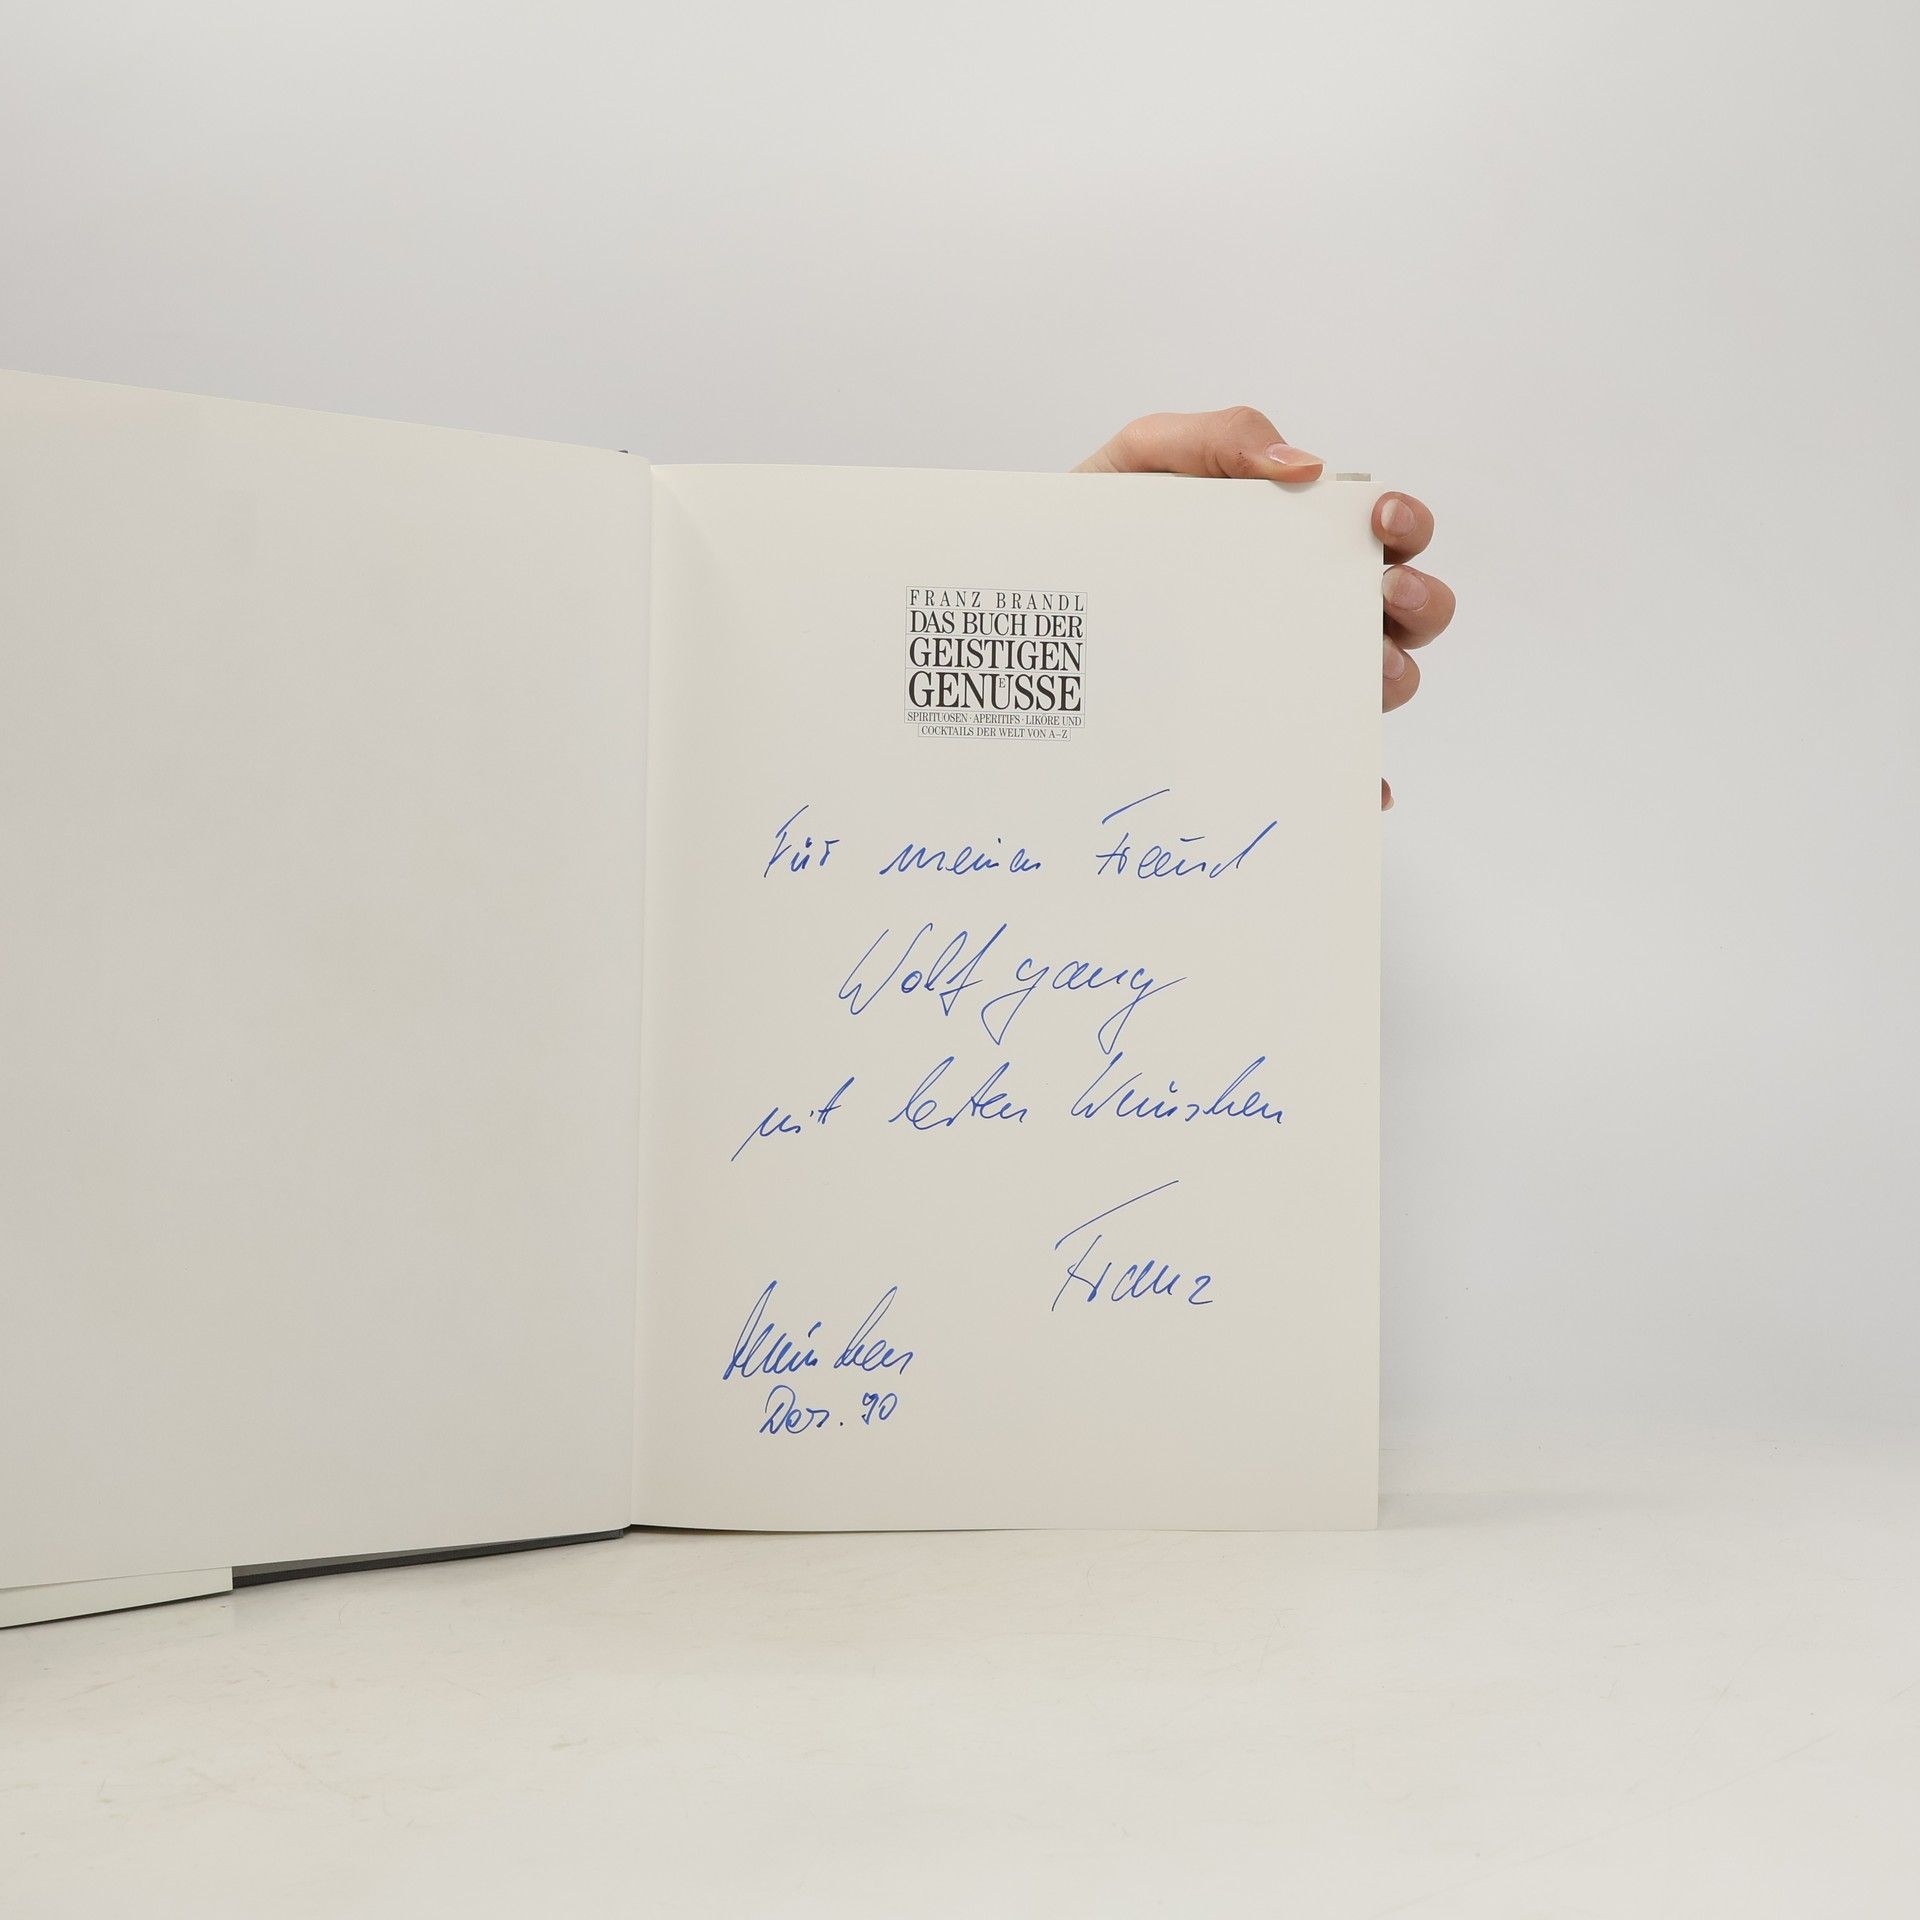 FRANZ BRANDL
DAS BUCH DER
GEISTIGEN
GENUESSE
SPIRITUOSEN · APERITIFS · LIKÖRE UND
COCKTAILS DER WELT VON A–Z
Für meinen Freund
Wolfgang
mit besten Wünschen
Franz
München
Dez. 90